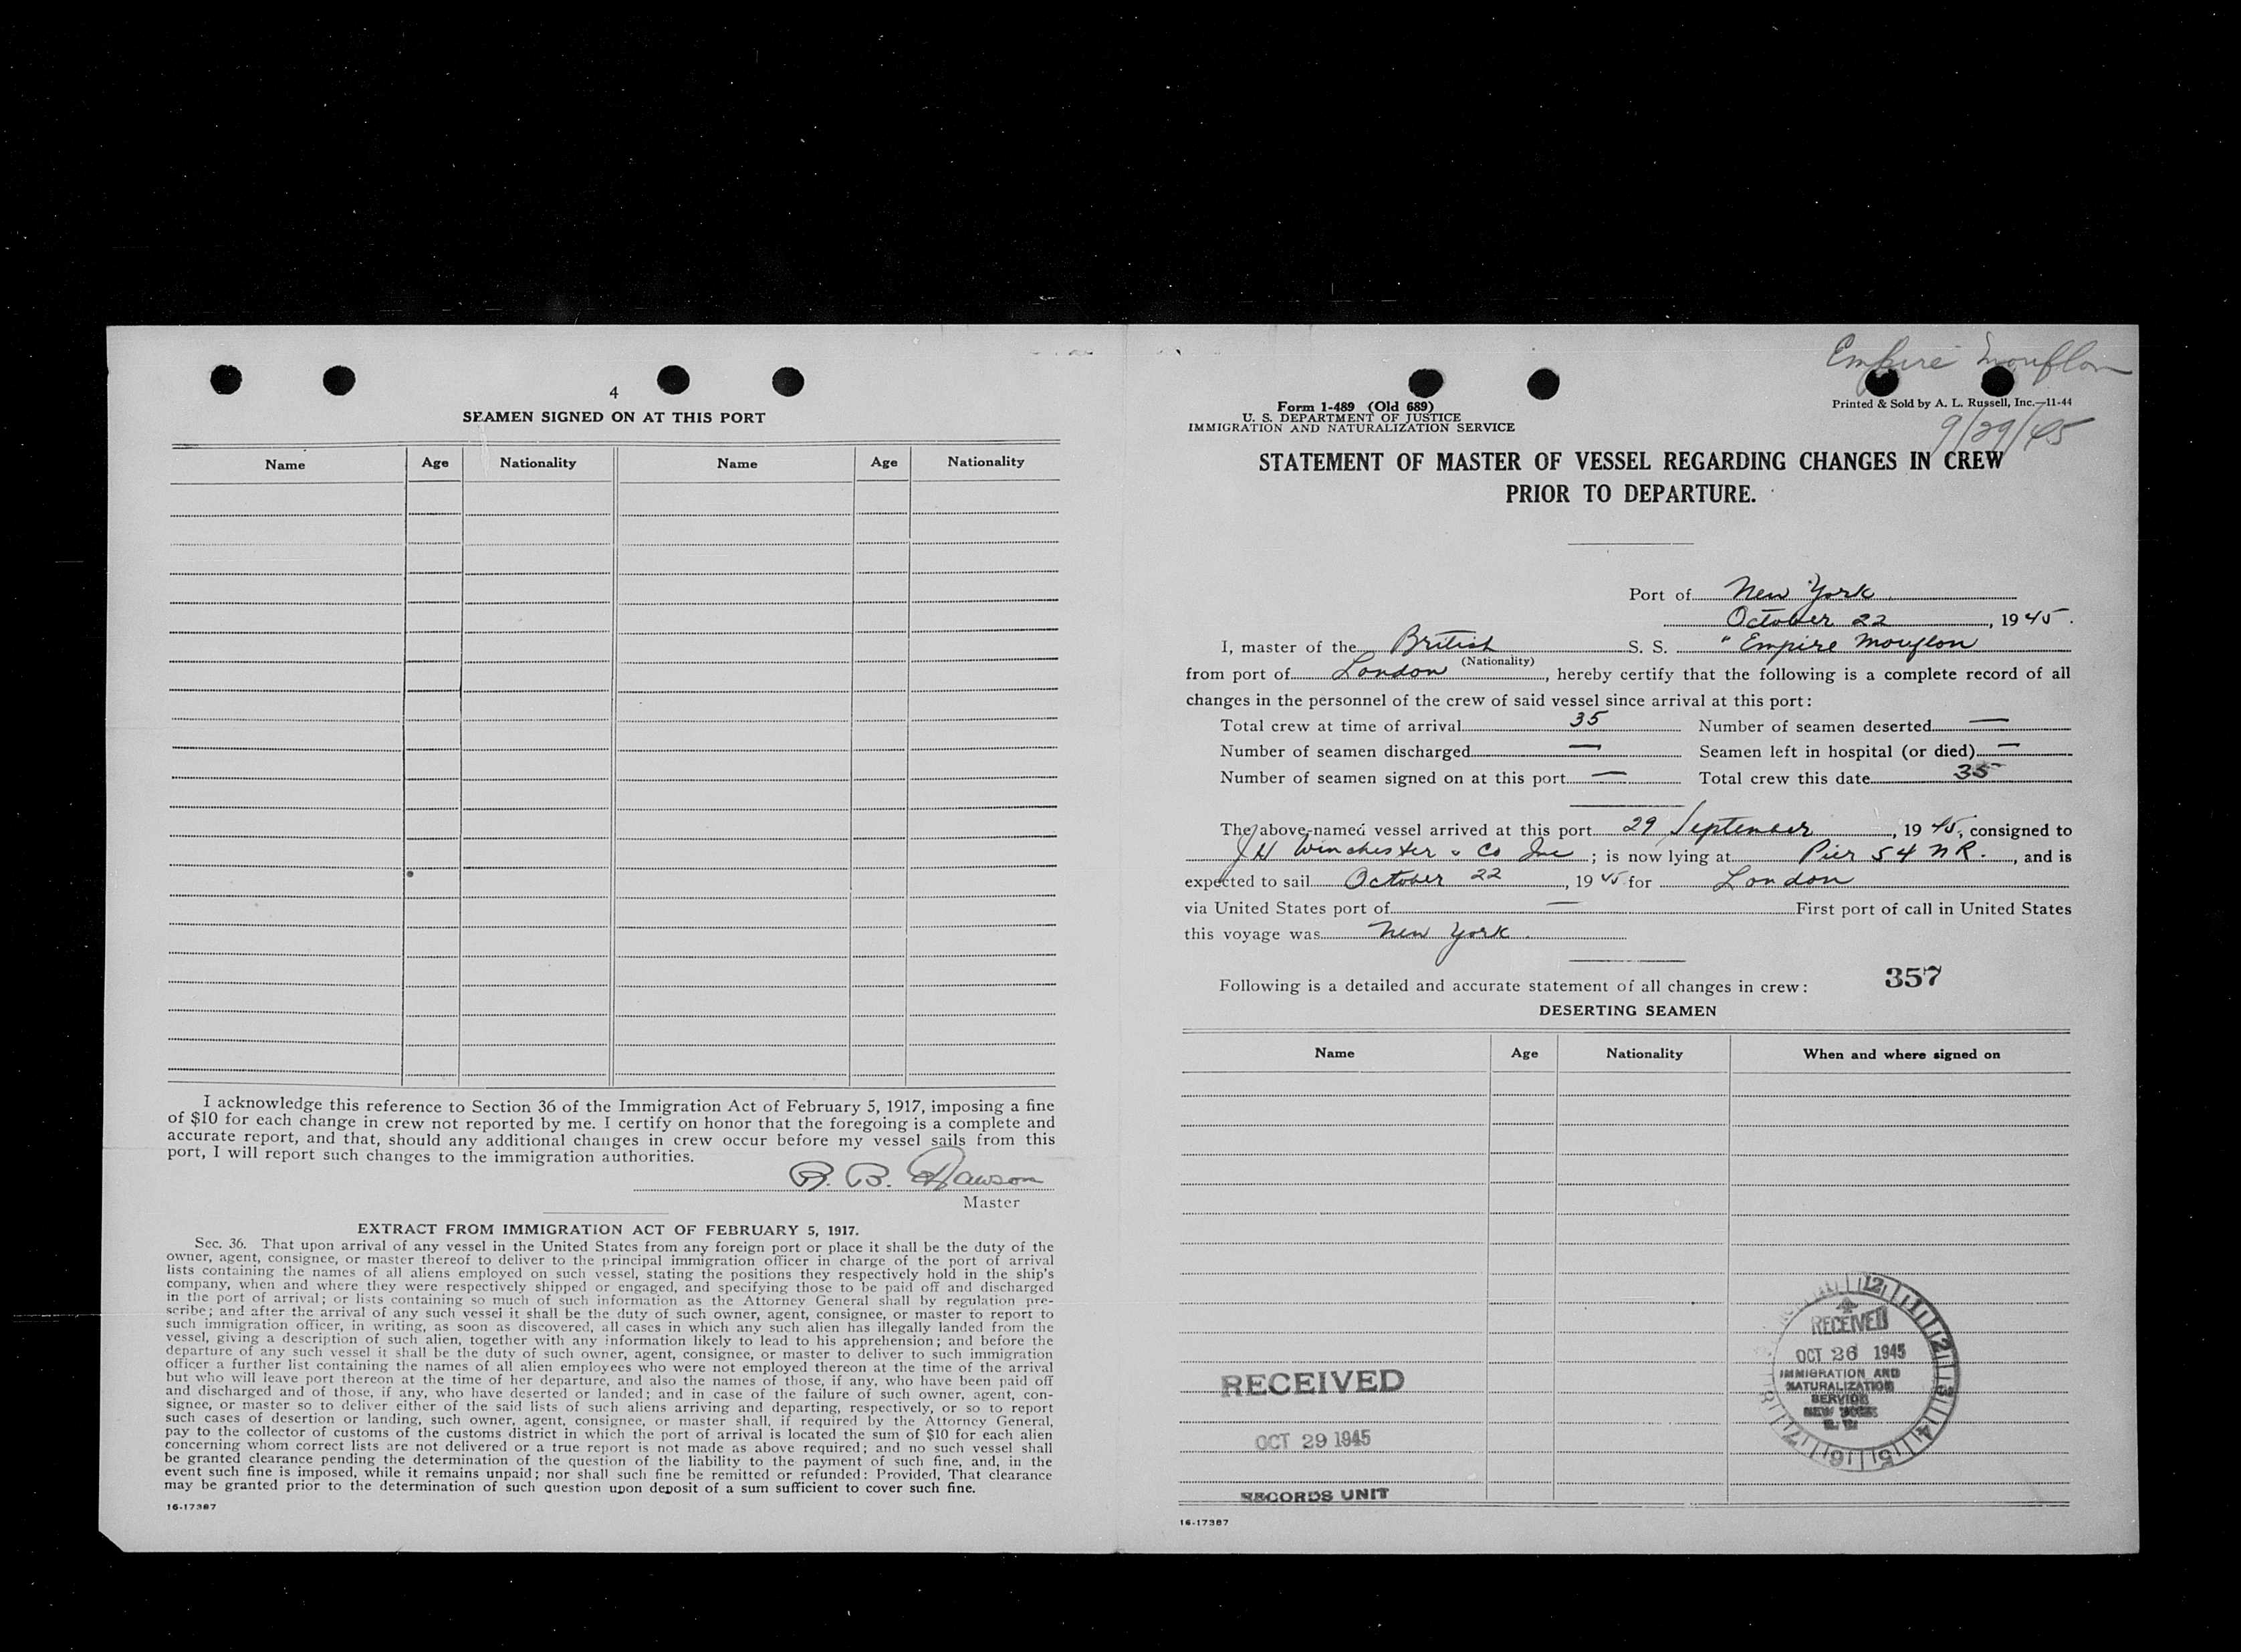 4
SEAMEN SIGNED ON AT THIS PORT
Name Age Nationality Name Age Nationality
I acknowledge this reference to Section 36 of the Immigration Act of February 5, 1917, imposing a fine
of $10 for each change in crew not reported by me. I certify on honor that the foregoing is a complete and
accurate report, and that, should any additional changes in crew occur before my vessel sails from this
port, I will report such changes to the immigration authorities.
B. Dawson
Master
EXTRACT FROM IMMIGRATION ACT OF FEBRUARY 5, 1917.
Sec. 36. That upon arrival of any vessel in the United States from any foreign port or place it shall be the duty of the
owner, agent, consignee, or master thereof to deliver to the principal immigration officer in charge of the port of arrival
lists containing the names of all aliens employed on such vessel, stating the positions they respectively hold in the ship's
company, when and where they were respectively shipped or engaged, and specifying those to be paid off and discharged
in the port of arrival; or lists containing so much of such information as the Attorney General shall by regulation pre-
scribe; and after the arrival of any such vessel it shall be the duty of such owner, agent, consignee, or master to report to
such immigration officer, in writing, as soon as discovered, all cases in which any such alien has illegally landed from the
vessel, giving a description of such alien, together with any information likely to lead to his apprehension; and before the
departure of any such vessel it shall be the duty of such owner, agent, consignee, or master to deliver to such immigration
officer a further list containing the names of all alien employees who were not employed thereon at the time of the arrival
but who will leave port thereon at the time of her departure, and also the names of those, if any, who have been paid off
and discharged and of those, if any, who have deserted or landed; and in case of the failure of such owner, agent, con-
signee, or master so to deliver either of the said lists of such aliens arriving and departing, respectively, or so to report
such cases of desertion or landing, such owner, agent, consignee, or master shall, if required by the Attorney General,
pay to the collector of customs of the customs district in which the port of arrival is located the sum of $10 for each alien
concerning whom correct lists are not delivered or a true report is not made as above required; and no such vessel shall
be granted clearance pending the determination of the question of the liability to the payment of such fine, and, in the
event such fine is imposed, while it remains unpaid; nor shall such fine be remitted or refunded: Provided, That clearance
may be granted prior to the determination of such question upon deposit of a sum sufficient to cover such fine.
16-17387
Empire Mouflon
Form 1-489 (Old 689)
U. S. DEPARTMENT OF JUSTICE
IMMIGRATION AND NATURALIZATION SERVICE
Printed & Sold by A. L. Russell, Inc.—11-44
9/29/45
STATEMENT OF MASTER OF VESSEL REGARDING CHANGES IN CREW
PRIOR TO DEPARTURE.
Port of New York
October 22, 1945.
I, master of the British S. S. "Empire Mouflon
(Nationality)
from port of London, hereby certify that the following is a complete record of all
changes in the personnel of the crew of said vessel since arrival at this port:
Total crew at time of arrival 35 Number of seamen deserted —
Number of seamen discharged — Seamen left in hospital (or died) —
Number of seamen signed on at this port — Total crew this date 35
The above-named vessel arrived at this port 29 September, 1945, consigned to
JH Winchester & Co Inc; is now lying at Pier 54 N R., and is
expected to sail October 22, 1945 for London
via United States port of — First port of call in United States
this voyage was New York.
Following is a detailed and accurate statement of all changes in crew: 357
DESERTING SEAMEN
Name Age Nationality When and where signed on
RECEIVED
OCT 29 1945
RECORDS UNIT
RECEIVED
OCT 26 1945
IMMIGRATION AND
NATURALIZATION
SERVICE
NEW YORK
16-17387